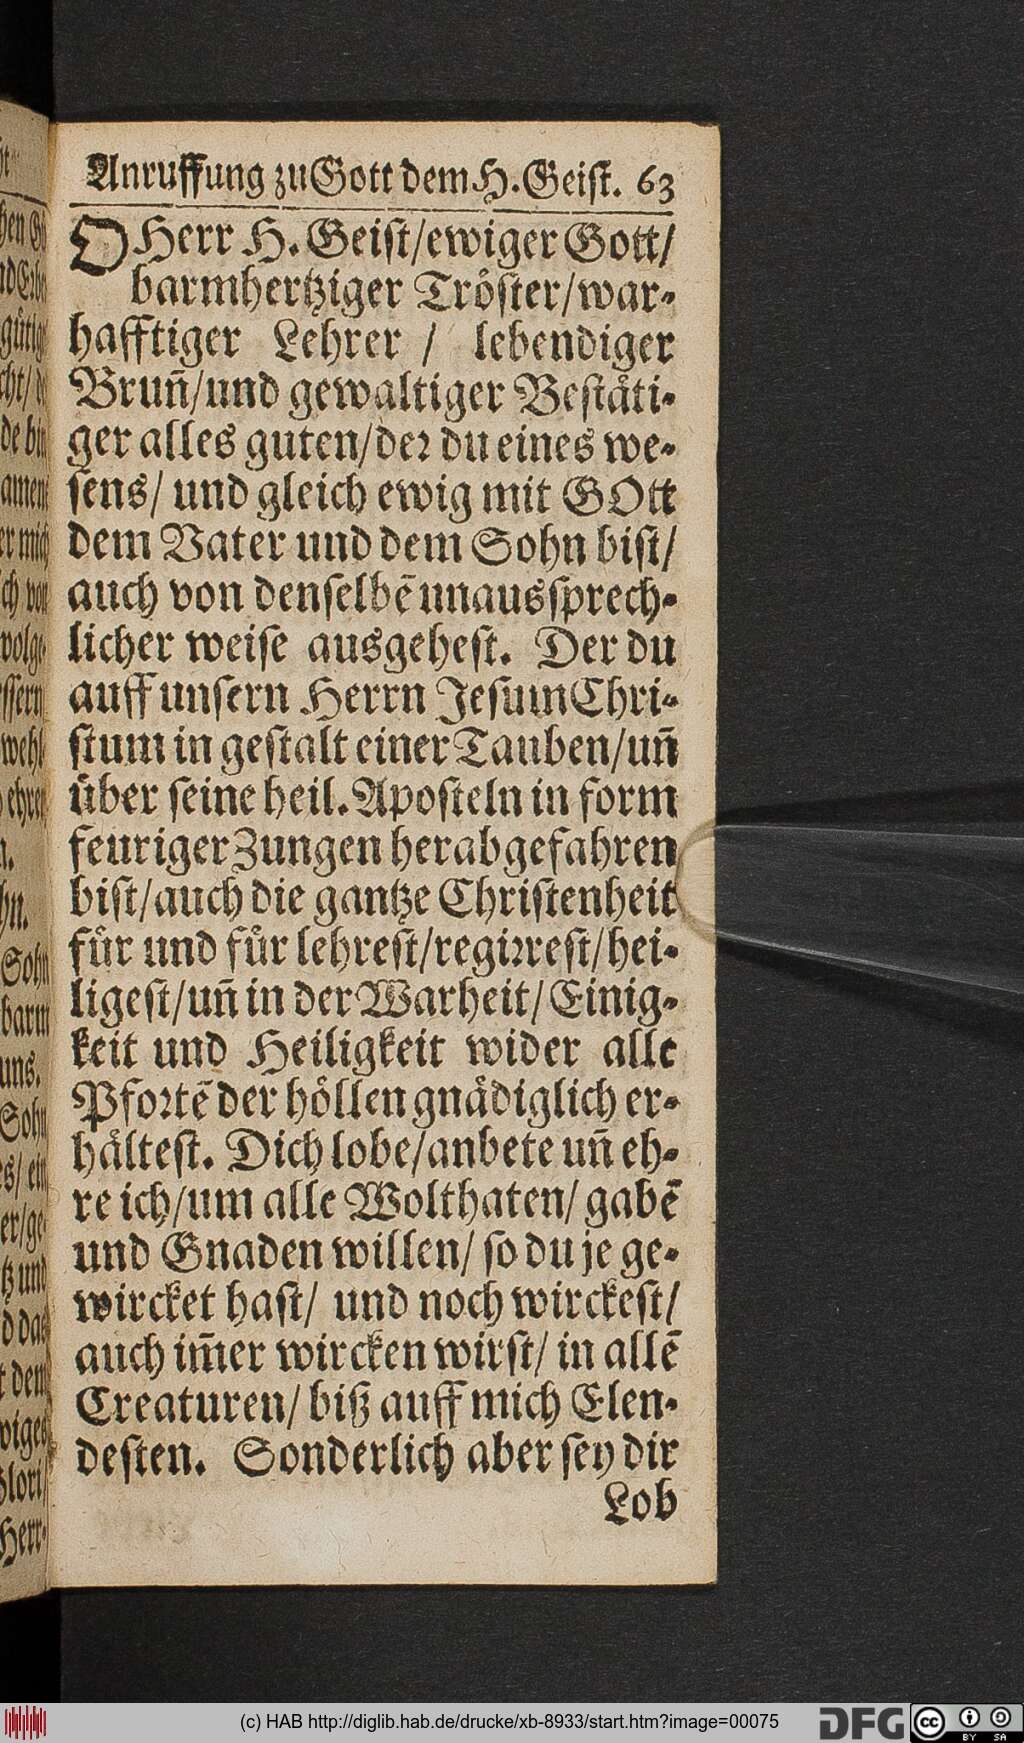 Anruffung zu Gott dem H. Geist. 63
O Herr H. Geist/ewiger Gott/
barmhertziger Tröster/war-
hafftiger Lehrer / lebendiger
Brun̄/und gewaltiger Bestäti-
ger alles guten/der du eines we-
sens/ und gleich ewig mit GOtt
dem Vater und dem Sohn bist/
auch von denselbē unaussprech-
licher weise ausgehest. Der du
auff unsern Herrn Jesum Chri-
stum in gestalt einer Tauben/un̄
über seine heil. Aposteln in form
feuriger Zungen herabgefahren
bist/auch die gantze Christenheit
für und für lehrest/regirrest/hei-
ligest/un̄ in der Warheit/Einig-
keit und Heiligkeit wider alle
Pfortē der höllen gnädiglich er-
hältest. Dich lobe/anbete un̄ eh-
re ich/um alle Wolthaten/ gabē
und Gnaden willen/ so du je ge-
wircket hast/ und noch wirckest/
auch im̄er wircken wirst/ in allē
Creaturen/ biß auff mich Elen-
desten. Sonderlich aber sey dir
Lob
(c) HAB http://diglib.hab.de/drucke/xb-8933/start.htm?image=00075
DFG
cc
BY SA